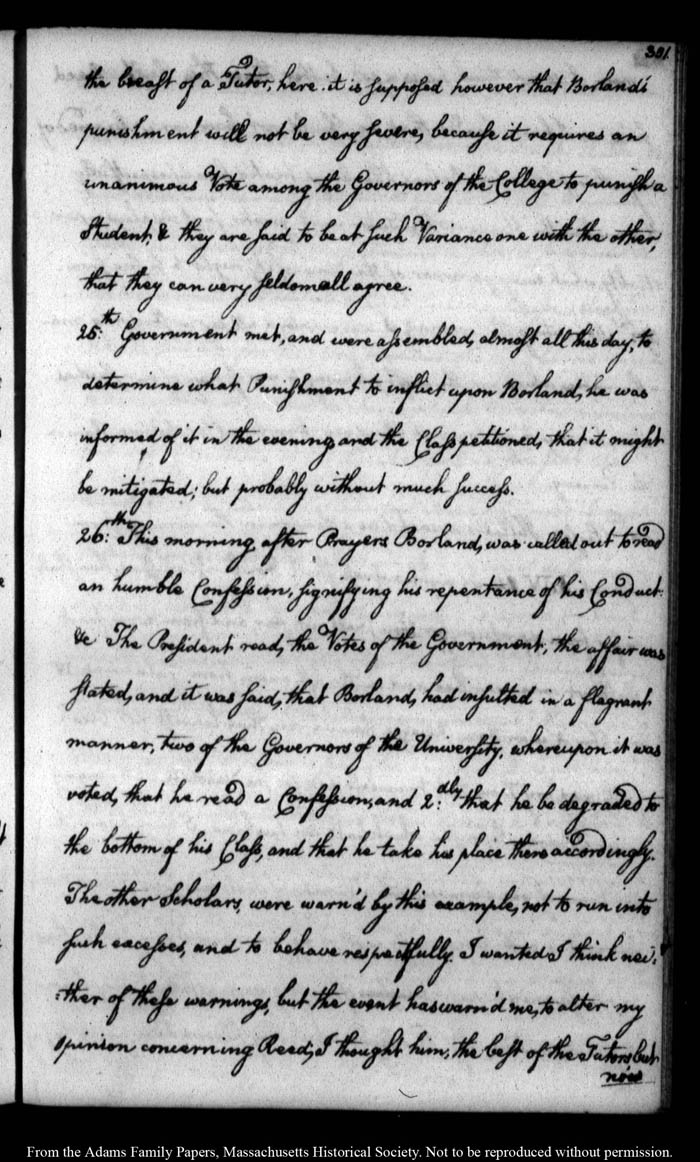 301.
the breast of a Tutor, here: it is supposed however that Borland's
punishment will not be very severe, because it requires an
unanimous Vote among the Governors of the College to punish a
Student, & they are said to be at such Variance one with the other,
that they can very seldom all agree.
25:th Government met, and were assembled, almost all this day, to
determine what Punishment to inflict upon Borland, he was
informed of it in the evening, and the Class petitioned, that it might
be mitigated; but probably without much success.
26:th This morning after Prayers Borland, was called out to read
an humble Confession, signifying his repentance of his Conduct
&c The President read, the Votes of the Government; the affair was
stated, and it was said, that Borland, had insulted in a flagrant
manner, two of the Governors of the University, whereupon it was
voted, that he read a Confession, and 2:dly that he be degraded to
the bottom of his Class, and that he take his place there accordingly.
The other Scholars, were warn'd by this example, not to run into
such excesses, and to behave respectfully. I wanted I think nei:
:ther of these warnings, but the event has warn'd me, to alter my
opinion concerning Reed; I thought him, the best of the Tutors but
now
From the Adams Family Papers, Massachusetts Historical Society. Not to be reproduced without permission.